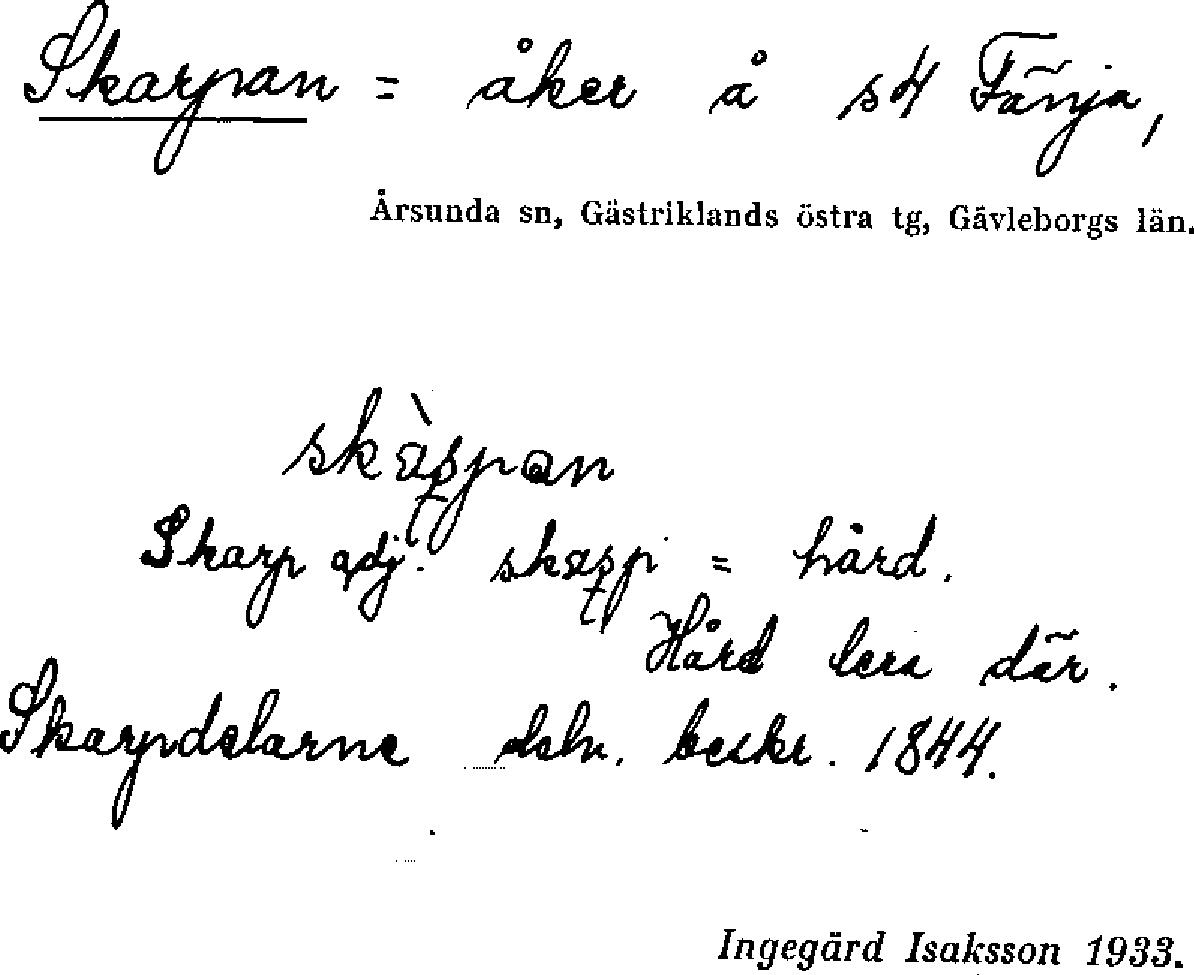 Skarpan = åker å s4 Fänja,
Årsunda sn, Gästriklands östra tg, Gävleborgs län.
Skarp adj. = hård.
Hård lera där.
Skarpdelarne deln. beskr. 1844.
Ingegärd Isaksson 1933.